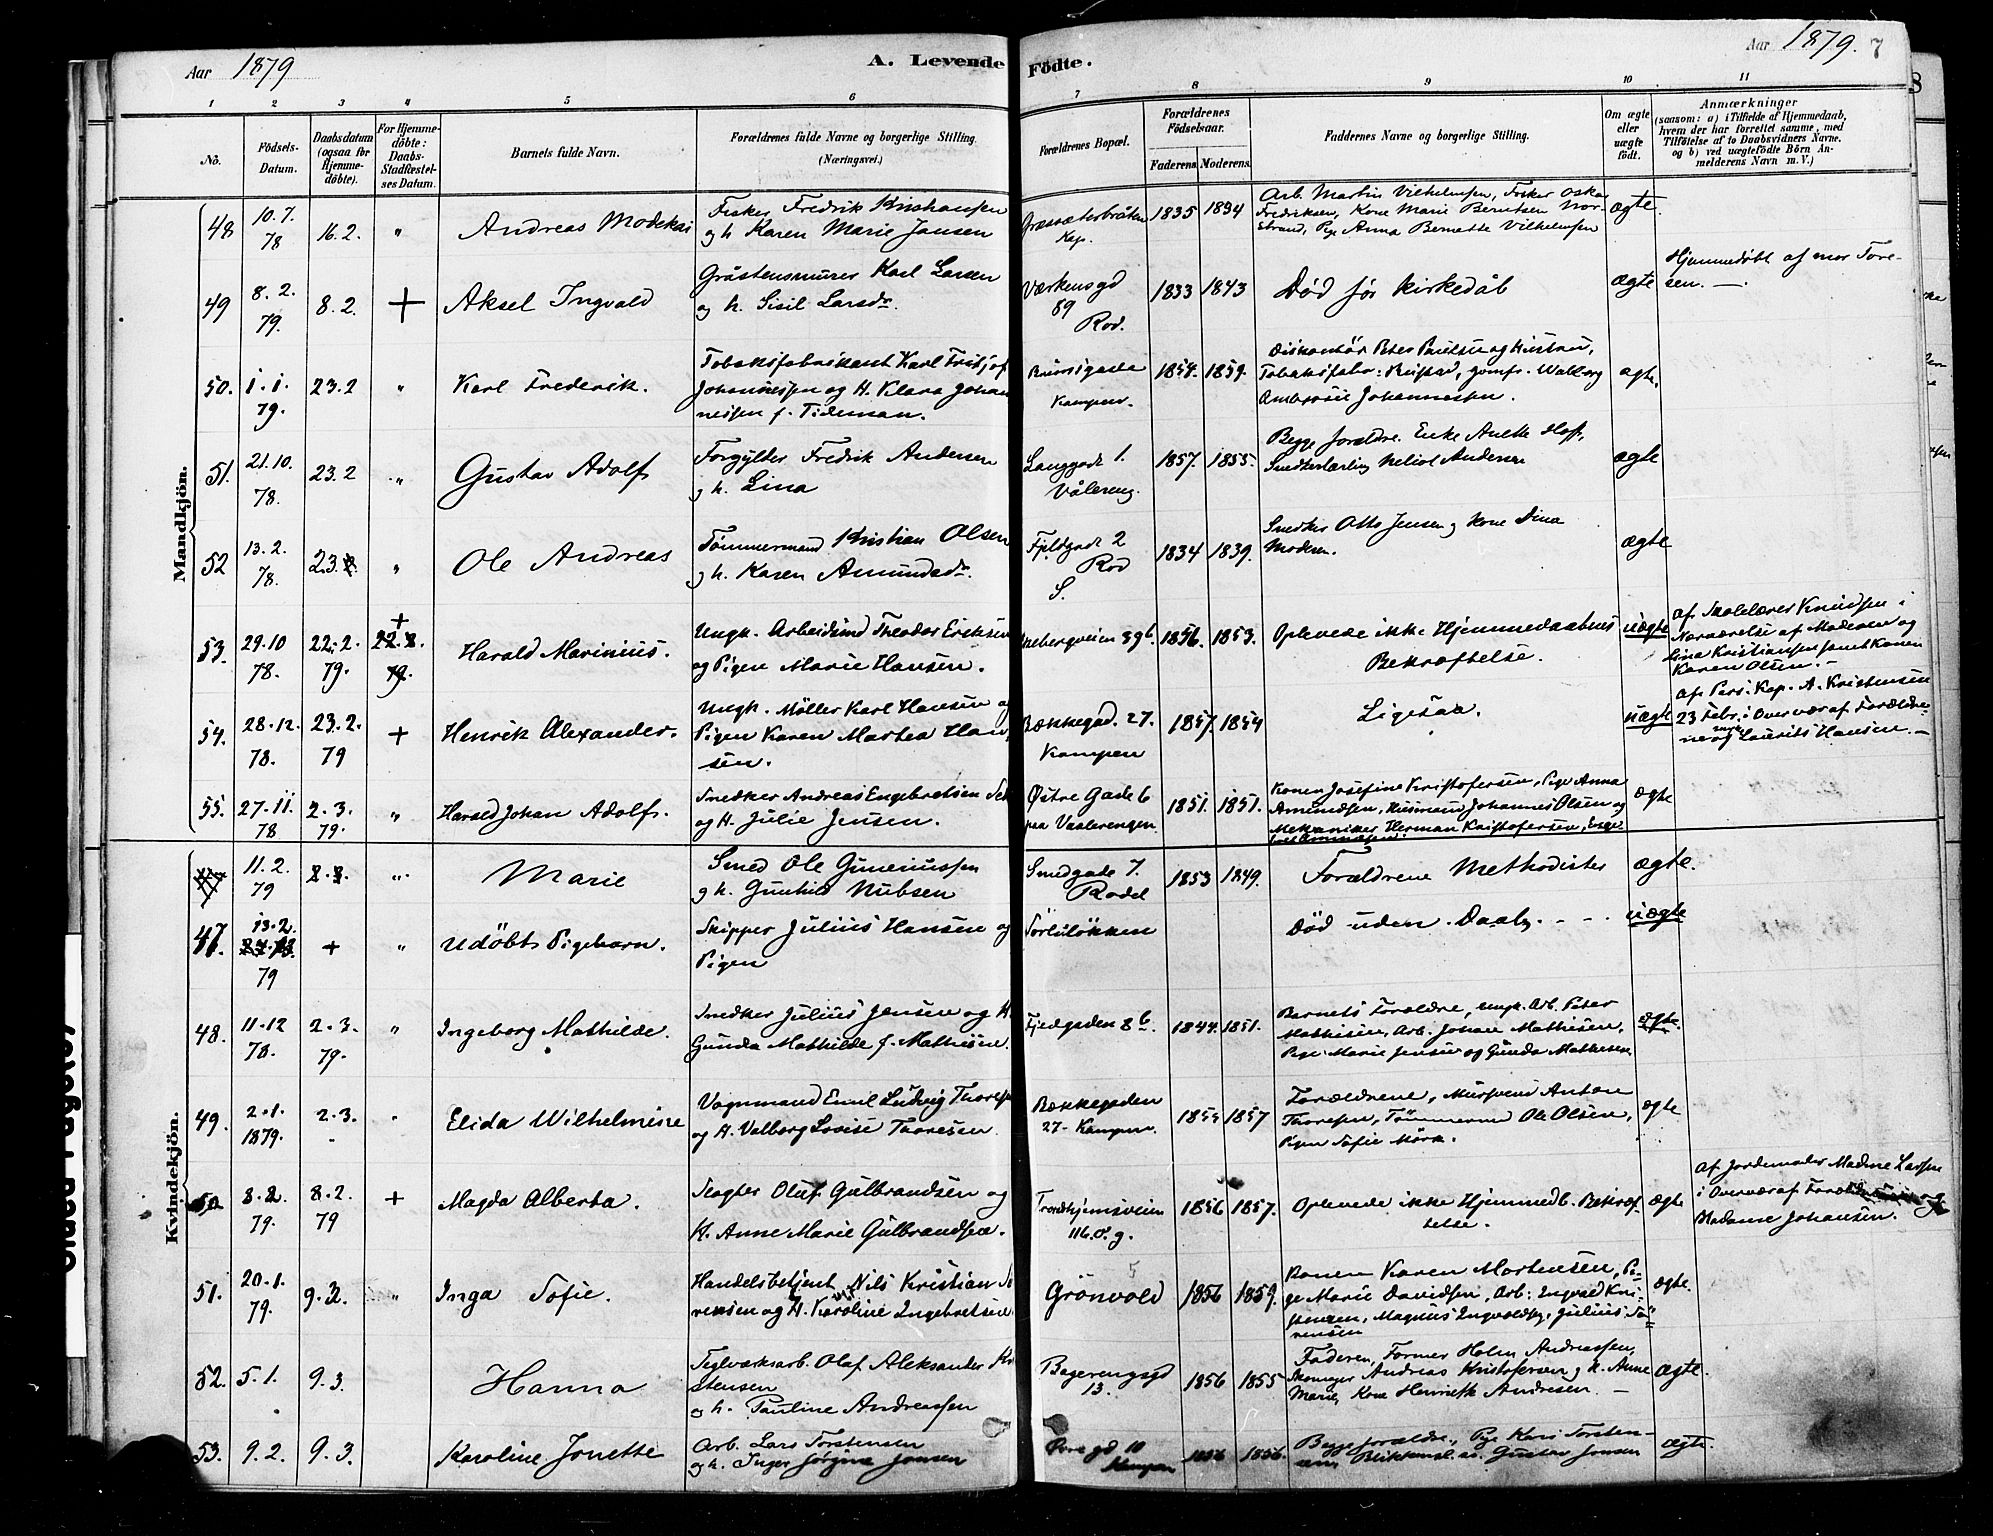 Aar 1879
A. Levende Födte.
Aar 1879. 7
1 2 3 4 5 6 7 8 9 10 11
No.
Födsels-Datum.
Daabsdatum (ogsaa for Hjemme-döbte).
For Hjemme-döbte: Daabs-Stadfæstel-ses Datum.
Barnets fulde Navn.
Forældrenes fulde Navne og borgerlige Stilling.
(Næringsvei.)
Forældrenes Bopæl.
Forældrenes Födselsaar.
Faderens. Moderens.
Faddernes Navne og borgerlige Stilling.
Om ægte eller uægte födt.
Anmærkninger
(saasom: a) i Tilfælde af Hjemmedaab,
hvem der har forrettet samme, med
Tilföielse af to Daabsvidners Navne,
og b) ved uægtefödte Börn An-
melderens Navn m. V.)
Mandkjön.
48 10.7. 78 16.2. " Andreas Modekai
Fisker Fredrik Kristiansen
og h. Karen Marie Jansen
1835 1834
Arb. Martin Vilhelmsen, Fisker Oskar
Fredriksen, Kone Marie Berntsen Nor-
strand, Pige Anna Bernette Vilhelmsen
ægte.
49 8.2. 79. 8.2. + Aksel Ingvald
Gråstensmurer Karl Larsen
og h. Sisil Larsdr.
Værkensgd 89 Rod.
1833 1843
Död för kirkedåb
ægte
Hjemmedöbt af mor Tore-
sen. —
50. 1.1. 79. 23.2 " Karl Frederik.
Tobaksfabrikant Karl Fritjof
Johannessen og H. Klara Johan
nessen f. Tideman.
Kampen.
1854. 1859.
Ambrosie Johannessen.
ægte.
51. 21.10. 78. 23.2 " Gustav Adolf
Forgylder Fredrik Andersen
og h. Lina
Langgade 1. Vålereng.
1857. 1855.
Begge forældre. Enke Anette Hof,
Andersen
ægte
52 13.2. 78. 23. " Ole Andreas
Tömmermand Kristian Olsen
og h. Karen Amundsdr.
Fjeldgade 2 Rod S.
1834 1839.
Snedker Otto Jensen og Kone Dina
Moderen.
ægte
53. 29.10 78. 22.2. 79. + 22.2. 79. Harald Marinius.
Ungk. Arbeidsmd Theodor Eriksen
og Pigen Marie Hansen.
Ekebergveien 39b.
1856. 1853.
Oplevede ikke Hjemmedaabens
Bekræftelse.
uægte
af Skolelærer Knudsen i
Nærværelse af Moderen og
Lina Kristiansen samt Konen
Karen Olsen. —
54. 28.12. 78. 23.2. 79 + Henrik Alexander.
Ungk. Möller Karl Hansen og
Pigen Karen Martea Han
sen.
Bækkegad. 27. Kampen
1857. 1854
Ligesaa.
uægte
af Pers. Kap. A. Kristensen
23 Febr. i Overvær af Forældre-
ne og Laurits Hansen. —
55. 27.11. 78 2.3. 79. " Harald Johan Adolf.
Snedker Andreas Engebretsen
og H. Julie Jensen.
Östre Gade 6 paa Vaalerengen
1851. 1851.
Konen Josefine Kristofersen, Pige Anna
Amundsen, Husmand Johannes Olsen og
Mekaniker Herman Kristofersen, Enge
ægte
Kvindekjön.
11.2. 79 " Marie
Smed Ole Guneriussen
og h. Gunhild Nubsen
Smedgade 7. Rodel
1853 1849.
Forældrene Methodister
ægte.
47. 13.2. 79 + " Udöbt Pigebarn.
Skipper Julius Hansen og
Pigen
Död uden Daab. - -
uægte
48. 11.12 78. 2.3. 79. " Ingeborg Mathilde.
Snedker Julius Jensen og H.
Gunda Mathilde f. Mathisen.
Fjeldgaden 8b.
1844. 1851.
Barnets Forældre, ungk. Arb. Peter
Mathisen, Arb. Johan Mathisen,
Pige Marie Jensen og Gunda Mathisen
ægte.
49. 2.1. 1879. 2.3. " Elida Wilhelmine
Vognmand Emil Ludvig Thoresen
og H. Valborg Lovise Thoresen
Bækkegaden 27 - Kampen.
1854 1857
Forældrene, Mursvend Anton
Thoresen, Tömmermd Ole Olsen,
Pigen Sofie Mörk.
ægte
50 8.2. 79. 8.2. 79 + Magda Alberta.
Slagter Oluf Gulbrandsen og
H. Anne Marie Gulbrandsen.
Trondhjemsveien 116. ö. g.
1856 1857.
Oplevede ikke Hjemmedb. Bekræf-
telse.
ægte
af Jordemoder Madme Larsen
i Overvær af Forældrene og
Madame Johansen.
51. 20.1. 79. 9.2. " Inga Sofie.
Handelsbetjent Nils Kristian Sö
rensen og H. Karoline Ingebretsen
Grönvold
1856 1859.
Konen Karen Mortensen, Pi-
ge Marie Davidsen, Arb: Ingvald Kri-
stensen, Magnus Ingvaldsen, Julius Sö-
rensen
ægte.
52. 5.1. 9.3. Hanna
Teglværksarb. Olaf Aleksander Kri
stensen
og h. Pauline Andreassen
13.
1856 1855
Faderen, Former Holm Andreassen,
Andreas Kristofersen og h. Anne
Marie, Kone Henriette Andresen. —
ægte.
53. 9.2. 9.3. Karoline Jonette
Arb. Lars Torstensen
og h. Inger Jörgine Jonsen
10 Kampen
1856 1856.
Begge forældre, Pige Kari Torsten-
sen, Gustav Jonsen
ægte.